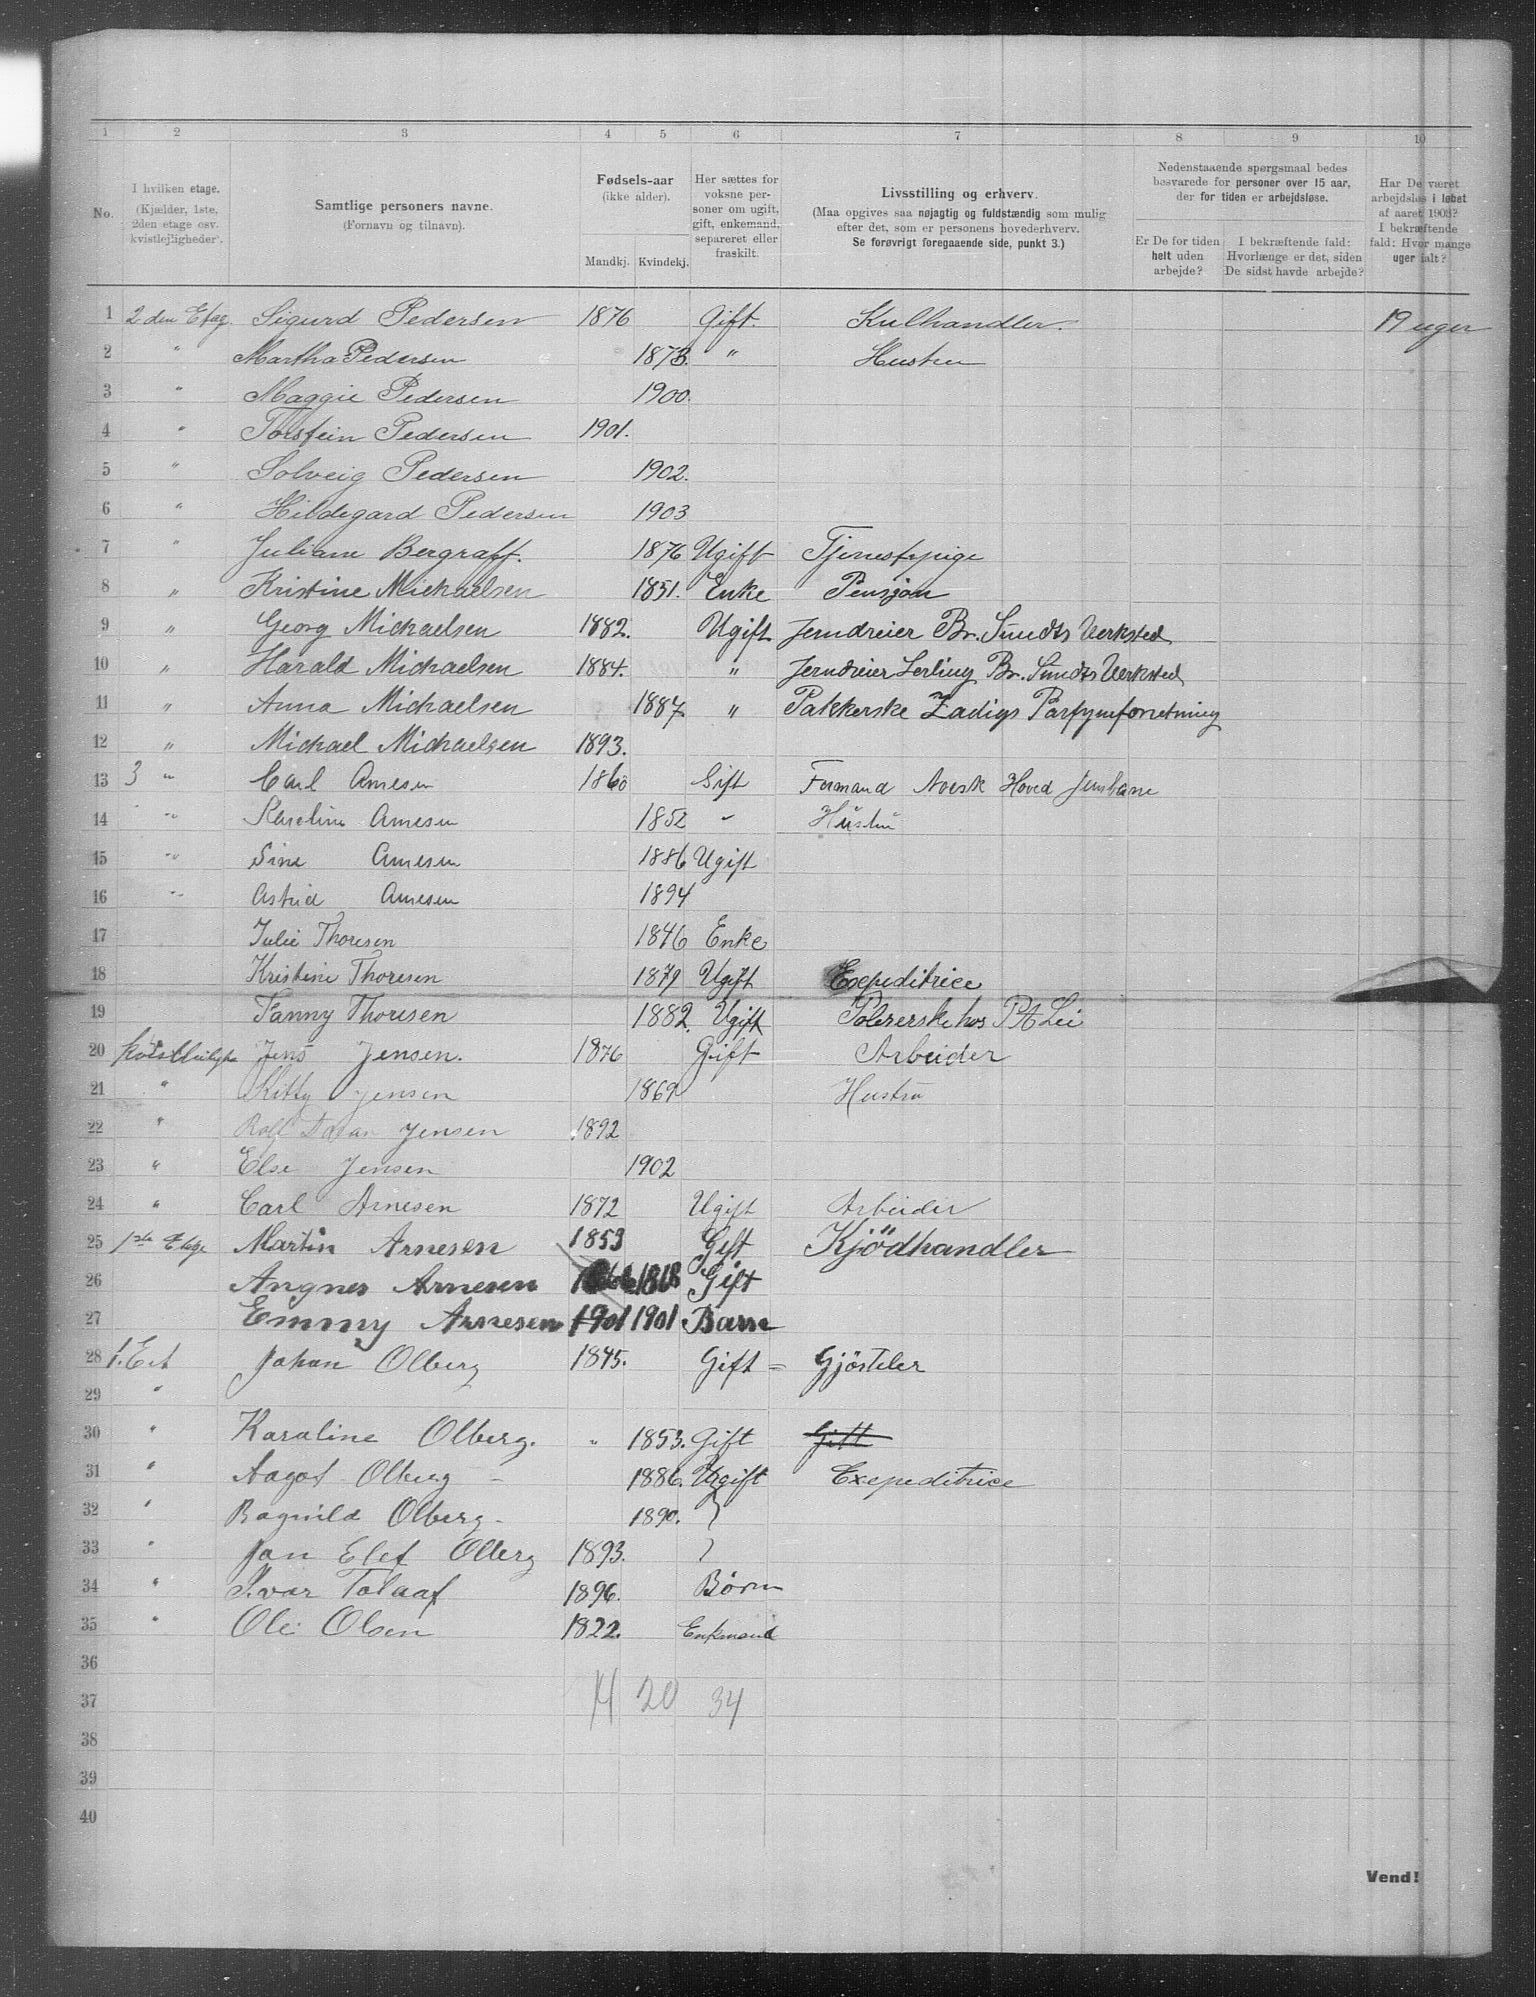 1 2 3 4 5 6 7 8 9 10
No.
I hvilken etage. (Kjælder, 1ste, 2den etage osv. kvistlejligheder).
Samtlige personers navne. (Fornavn og tilnavn).
Fødsels-aar (ikke alder). Mandkj. Kvindekj.
Her sættes for voksne personer om ugift, gift, enkemand, separeret eller fraskilt.
Livsstilling og erhverv. (Maa opgives saa nøjagtig og fuldstændig som mulig efter det, som er personens hovederhverv. Se forøvrigt foregaaende side, punkt 3.)
Nedenstaaende spørgsmaal bedes besvarede for personer over 15 aar, der for tiden er arbejdsløse.
Er De for tiden helt uden arbejde?
I bekræftende fald: Hvorlænge er det, siden De sidst havde arbejde?
Har De været arbejdsløs i løbet af aaret 1903? I bekræftende fald: Hvor mange uger ialt?
1 2 den Etag. Sigurd Pedersen 1876 Gift. Kulhandler. 19 uger
2 " Martha Pedersen 1873. " Hustru
3 " Maggie Pedersen 1900.
4 " Torstein Pedersen 1901.
5 " Solveig Pedersen 1902.
6 " Hildegard Pedersen 1903
7 " Juliane Bergraff. 1876 Ugift Tjenestepige
8 " Kristine Michaelsen 1851. Enke Pensjon
9 " Georg Michaelsen 1882. Ugift Jerndreier Br. Sundts Verksted
10 " Harald Michaelsen 1884. " Jerndreier Lerling Br. Sundts Verksted
11 " Anna Michaelsen 1887 " Pakkerske Zadigs Parfymforretning
12 " Michael Michaelsen 1893.
13 3 " Carl Arnesen 1860 Gift Formand Norsk Hoved Jernbane
14 " Karoline Arnesen 1852 " Hustru
15 " Sina Arnesen 1886 Ugift
16 " Astrid Arnesen 1894
17 Julie Thoresen 1846 Enke
18 Kristine Thoresen 1879 Ugift Exepeditrice
19 Fanny Thoresen 1882. Ugift Polererske hos
20 Jens Jensen. 1876 Gift Arbeider
21 " Kitty Jensen 1869 Hustru
22 " Rolf Jensen 1892
23 " Else Jensen 1902
24 " Carl Arnesen 1872 Ugift Arbeider
25 1ste Etage Martin Arnesen 1853 Gift Kjödhandler
26 Angnes Arnesen Gift
27 Emmy Arnesen 1901 1901 Barn
28 1. Et Johan Olberg 1845. Gift = Gjörtler
29 "
30 " Karaline Olberg. " 1853. Gift Gift
31 " Aagot Olberg - 1886. Ugift Exepeditrice
32 " Ragnild Olberg - 1890. }
33 " Jan Elef Olberg 1893. }
34 " Ivar Tolaaf 1896. Börn
35 " Ole Olsen 1822. Enkmand
36
37 14 20 34
38
39
40
Vend!